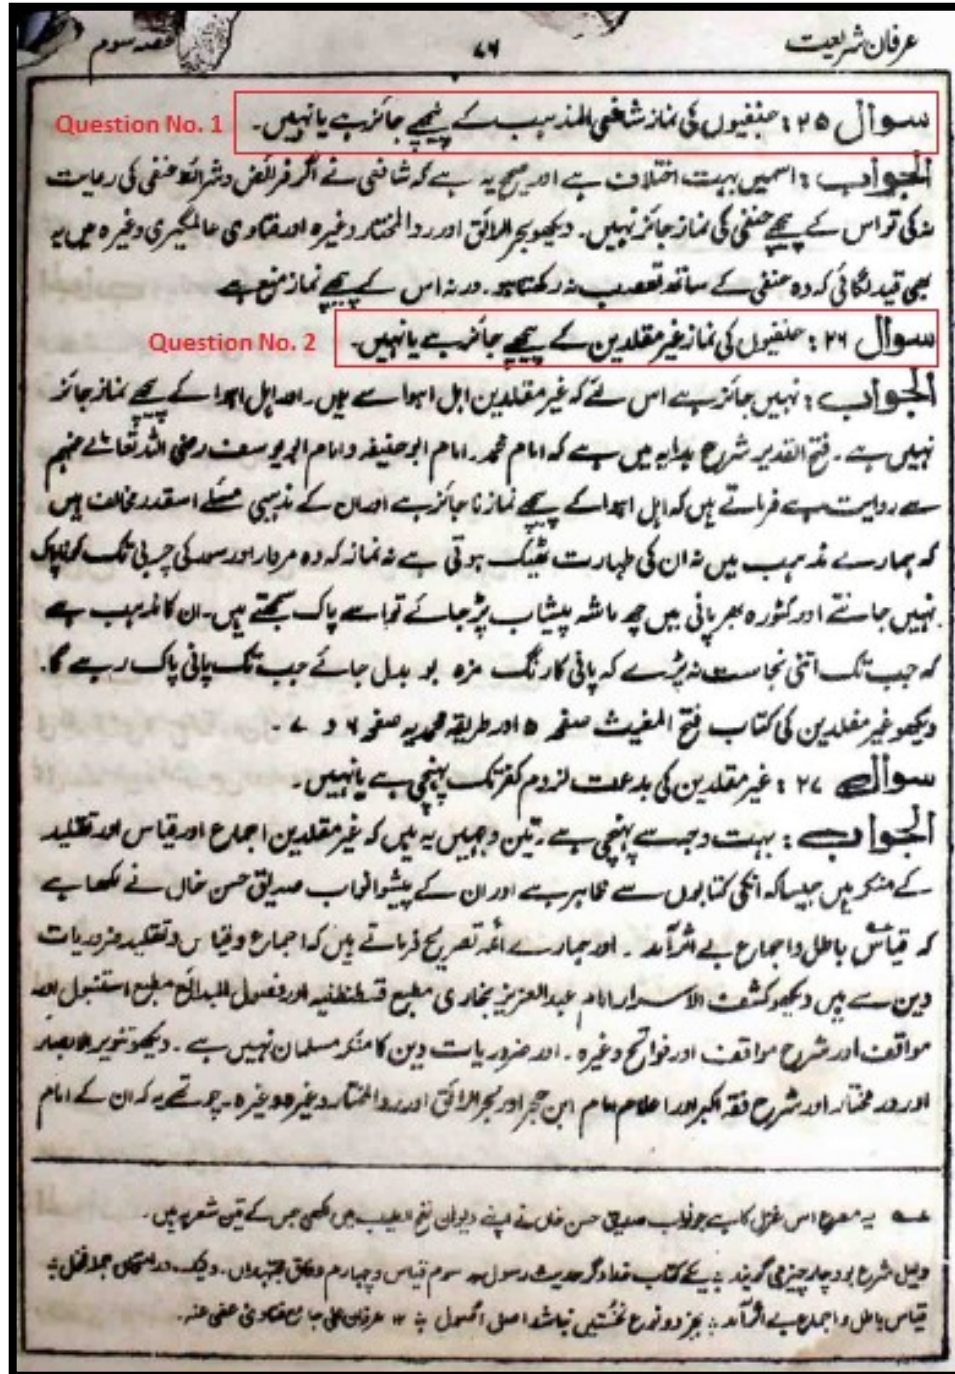 عرفان شریعت ۷۶ حصہ سوم
Question No. 1
سوال ۲۵ : حنفیوں کی نماز شافعی المذہب کے پیچھے جائز ہے یا نہیں۔
الجواب : اسمیں بہت اختلاف ہے اور صحیح یہ ہے کہ شافعی نے اگر فرائض و شرائط حنفی کی رعایت
نہ کی تو اس کے پیچھے حنفی کی نماز جائز نہیں۔ دیکھو بحر الرائق اور ردالمختار وغیرہ اور فتاوی عالمگیری وغیرہ میں یہ
بھی قید لگائی کہ وہ حنفی کے ساتھ تعصب نہ رکھتا ہو۔ ورنہ اس کے پیچھے نماز منع ہے
Question No. 2
سوال ۲۶ : حنفیوں کی نماز غیر مقلدین کے پیچھے جائز ہے یا نہیں۔
الجواب : نہیں جائز ہے اس لئے کہ غیر مقلدین اہل اہوا سے ہیں۔ اور اہل اہوا کے پیچھے نماز جائز
نہیں ہے۔ فتح القدیر شرح ہدایہ میں ہے کہ امام محمد۔ امام ابو حنیفہ و امام ابو یوسف رضی اللہ تعالےٰ عنہم
سے روایت ہے فرماتے ہیں کہ اہل اہوا کے پیچھے نماز نا جائز ہے اور ان کے مذہبی مسئلے اسقدر مخالف ہیں
کہ ہمارے مذہب میں نہ ان کی طہارت ٹھیک ہوتی ہے نہ نماز کہ وہ مردار اور سور کی چربی تک کو ناپاک
نہیں جانتے اور کٹورہ بھر پانی میں چھ ماشہ پیشاب پڑ جائے تو اسے پاک سمجھتے ہیں۔ ان کا مذہب ہے
کہ جب تک اتنی نجاست نہ پڑے کہ پانی کا رنگ مزہ بو بدل جائے جب تک پانی پاک رہے گا۔
دیکھو غیر مقلدین کی کتاب فتح المغیث صفحہ ۵ اور طریقہ محمدیہ صفحہ ۶ و ۷ ۔
سوال ۲۷ : غیر مقلدین کی بدعت لزوم کفر تک پہنچی ہے یا نہیں۔
الجواب : بہت وجہ سے پہنچی ہے۔ تین وجہیں یہ ہیں کہ غیر مقلدین اجماع اور قیاس اور تقلید
کے منکر ہیں جیسا کہ انکی کتابوں سے ظاہر ہے اور ان کے پیشوا نواب صدیق حسن خاں نے لکھا ہے
کہ قیاس باطل و اجماع بے اثر آمد ۔ اور ہمارے ائمہ تصریح فرماتے ہیں کہ اجماع و قیاس و تقلید ضروریات
دین سے ہیں دیکھو کشف الاسرار امام عبدالعزیز بخاری مطبع قسطنطنیہ اور فصول البدائع مطبع استنبول اور
مواقف اور شرح مواقف اور فواتح وغیرہ۔ اور ضروریات دین کا منکر مسلمان نہیں ہے ۔ دیکھو تنویر الابصار
اور در مختار اور شرح فقہ اکبر اور اعلام امام ابن حجر اور بحر الرائق اور ردالمختار وغیرہ وغیرہ۔ چوتھے یہ کہ ان کے امام
یہ مصرع اس غزل کا ہے جو نواب صدیق حسن خاں نے اپنے دیوان نفح الطیب میں لکھی جس کے تین شعر یہ ہیں۔
دلیل شرع بود چار چیز می گویند یکے کتاب خدا دگر حدیث رسول سوم قیاس و چہارم
قیاس باطل و اجماع بے اثر آمد بجز دو نوع نخستیں نباشد اصل اصول ۱۲ عرفان علی جامع فتاوی عفی عنہ۔